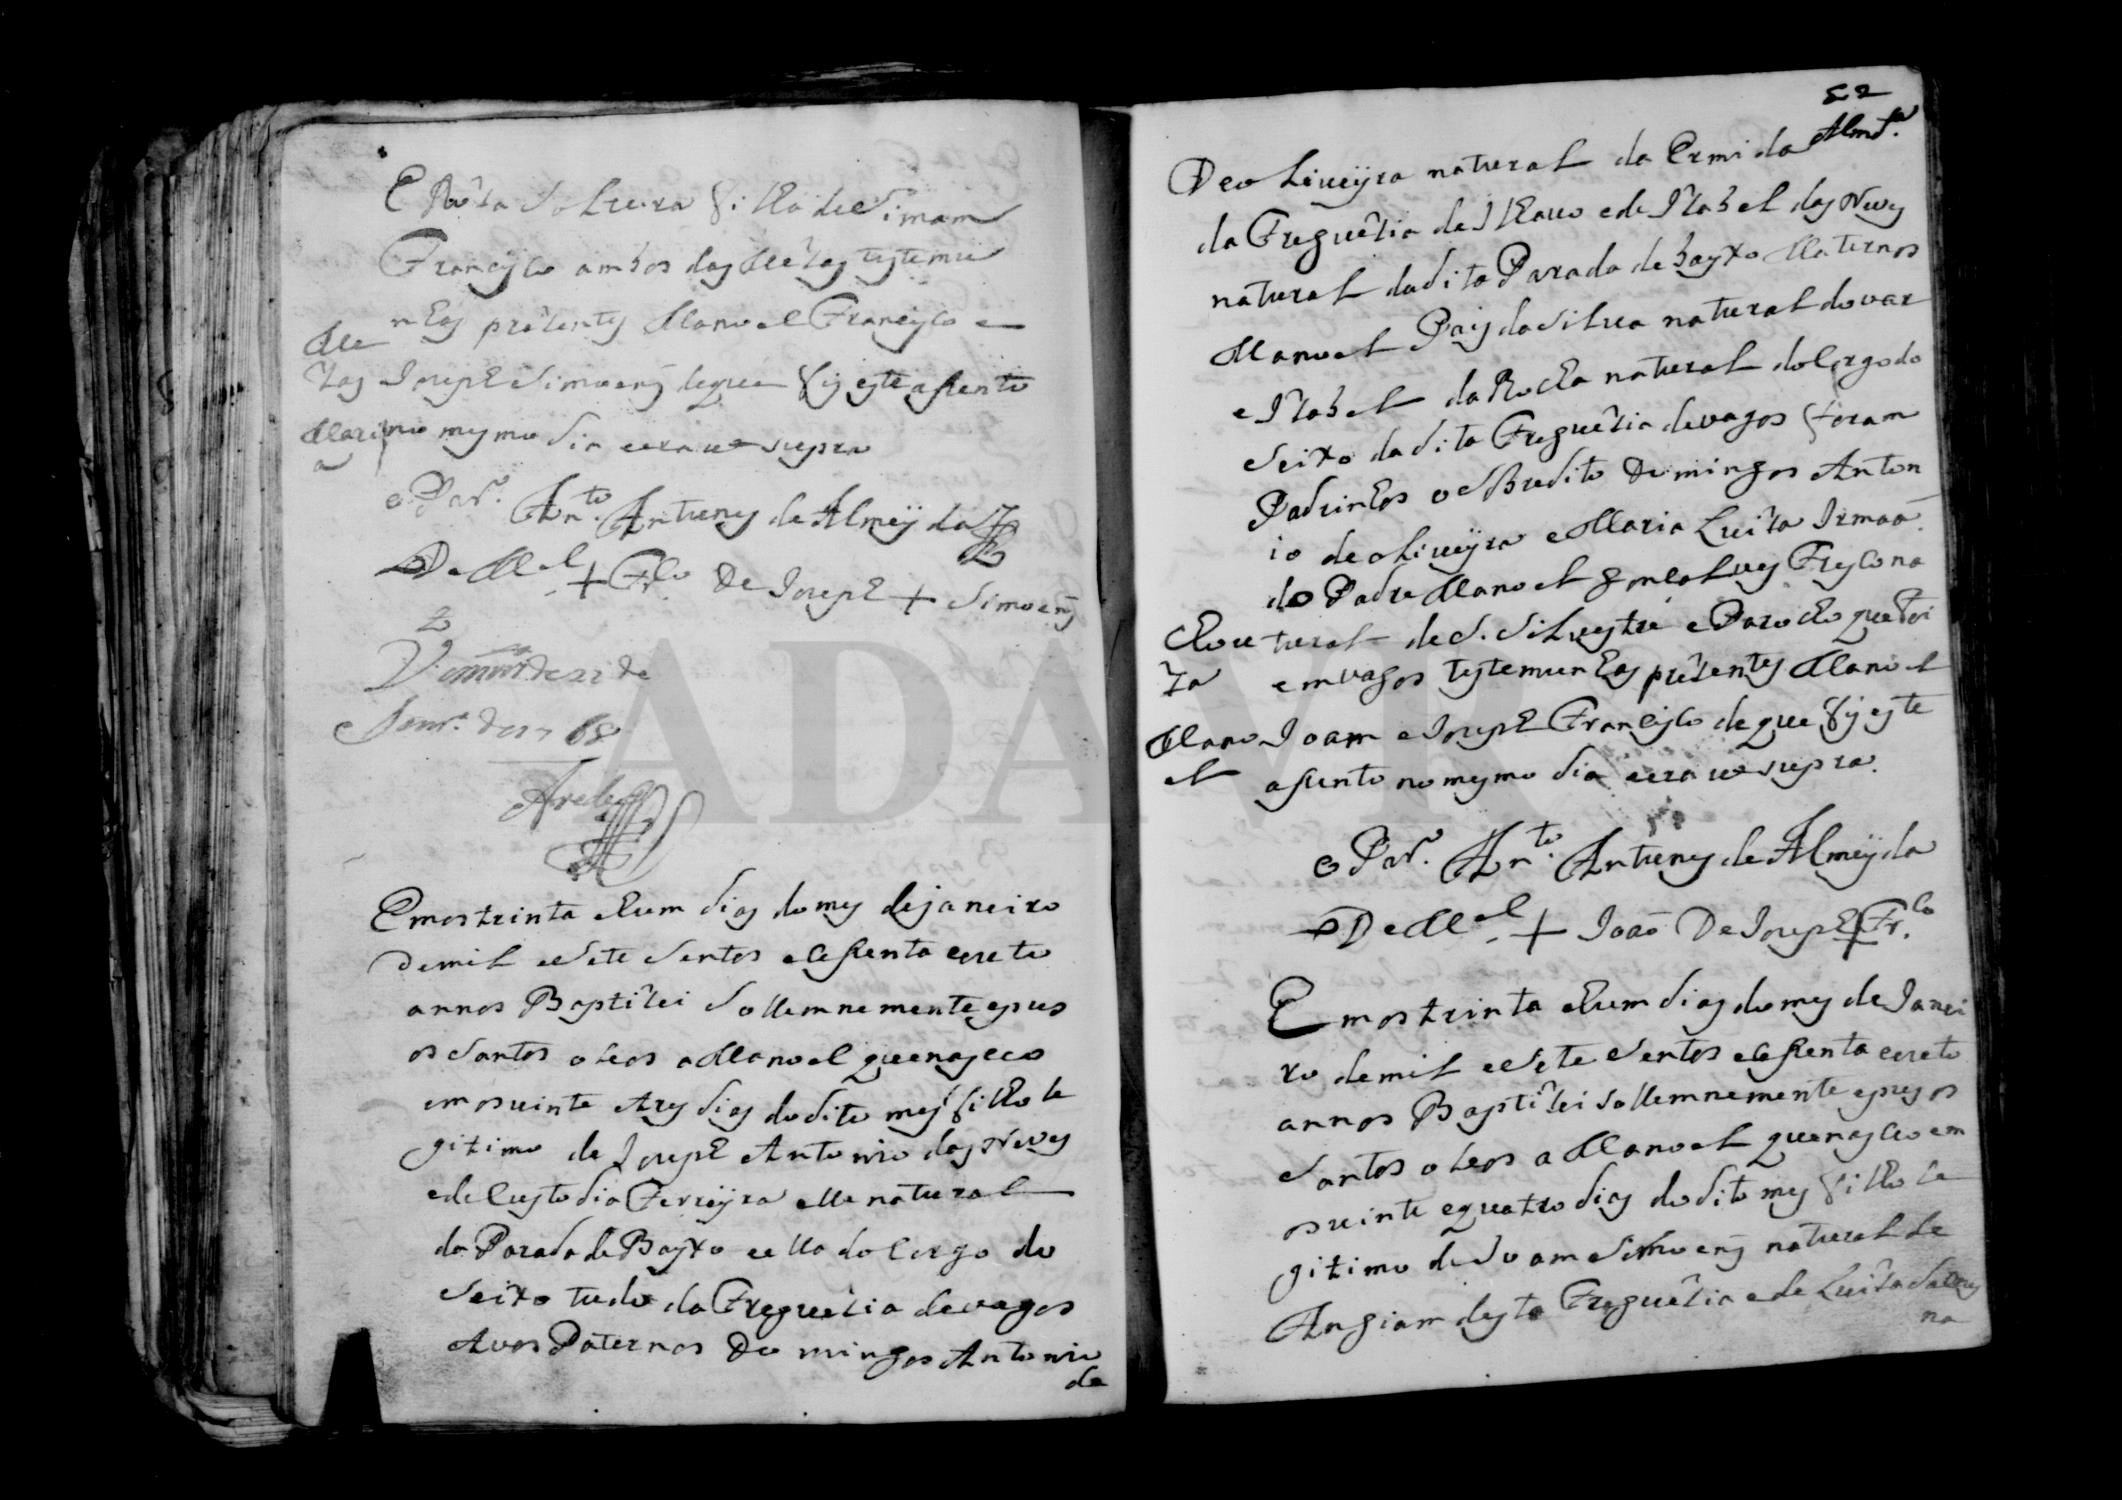 E Roza Solteira filha de Simam
Francisco ambos das Mezas testemu
nhas prezentes Manoel Francisco e
Me
zas Joseph Simoens de que fis este asento
Mari no mesmo dia e era ut supra
a
o Par.º Ant.º Antunes de Almeyda
De M.el + Fr.co De Joseph + Simoens
V.
68
ADAVR
Em os trinta e hum dias do mes de janeiro
de mil e sete sentos e sesenta e oeto
annos Baptizei Sollemnemente e pus
os Santos oleos a Manoel que nasceo
em os vinte e tres dias do dito mes filho le
gitimo de Joseph Antonio das Neves
e de Custodia Ferreyra elle natural
da Parada de Bayxo e ella do Corgo do
Seixo tudo da Freguezia de vagos
Avos Paternos Domingos Antonio
de
52
Almd.ª
De oliveyra natural da Ermida
da Freguezia de Ilhavo e de Izabel das Neves
natural da dita Parada de bayxo Maternos
Manoel Pais da Silva natural do var
e Izabel da Rocha natural do Corgo do
Seixo da dita Freguezia de vagos foram
Padrinhos o Sobredito Domingos Anton
io de oliveyra e Maria Luiza Irmaã
do Padre Manoel gonsalves Fresco na
Chou tural de S. Silvestre e Parocho que foi
za em vagos testemunhas prezentes Manoel
Mano Joam e Joseph Francisco de que fis este
el asento no mesmo dia e era ut supra.
o Par.º Ant.º Antunes de Almeyda
De M.el + Joaõ De Joseph + Fr.co
Em os trinta e hum dias do mes de Janei
ro de mil e sete sentos e sesenta e oeto
annos Baptizei Sollemnemente e pus os
Santos oleos a Manoel que nasceo em
os vinte e quatro dias do dito mes filho le
gitimo de Joam Simoens natural de
Angiam desta Freguezia e de Luiza
na